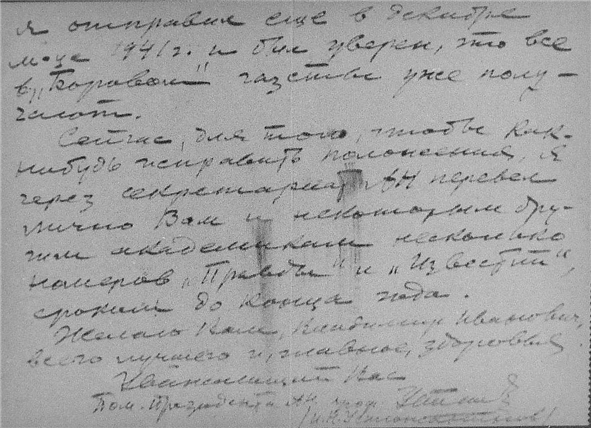 я отправил еще в декабре
м-це 1941 г. и был уверен, что все
в „Боровом“ газеты уже полу-
чают.
Сейчас, для того, чтобы как-
нибудь исправить положение, я
через секретариат АН перевел
лично Вам и некоторым дру-
гим академикам несколько
номеров „Правды“ и „Известий“,
сроком до конца года.
Желаю Вам, Владимир Иванович,
всего лучшего и, главное, здоровья.
Уважающий Вас
Пом. Президента АН